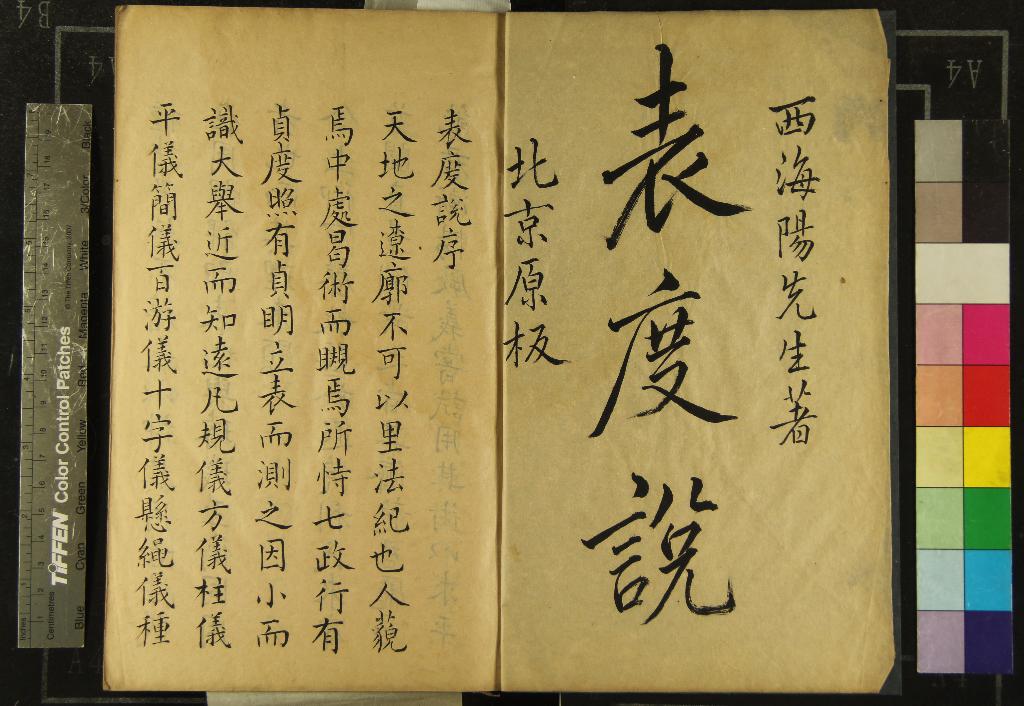 西海陽先生著
表度說
北京原板
表度說序
天地之遼廓不可以里法紀也人藐
焉中處曷術而瞡焉所恃七政行有
貞度照有貞明立表而測之因小而
識大舉近而知遠凡規儀方儀柱儀
平儀簡儀百游儀十字儀懸繩儀種
TIFFEN Color Control Patches
© The Tiffen Company, 2007
Inches
Centimetres
Blue
Cyan
Green
Yellow
Red
Magenta
White
3/Color
Black
B4
A4
A4
A4
A4